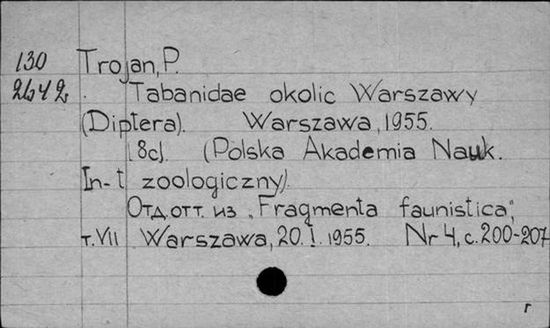 130 Trojan, P.
2642 Tabanidae okolic Warszawy
(Diptera). Warszawa, 1955.
[8c]. (Polska Akademia Nauk.
In-t zoologiczny).
Отд. отт. из „Fragmenta faunistica",
т. VII Warszawa, 20.I.1955. Nr 4, с. 200-207
г